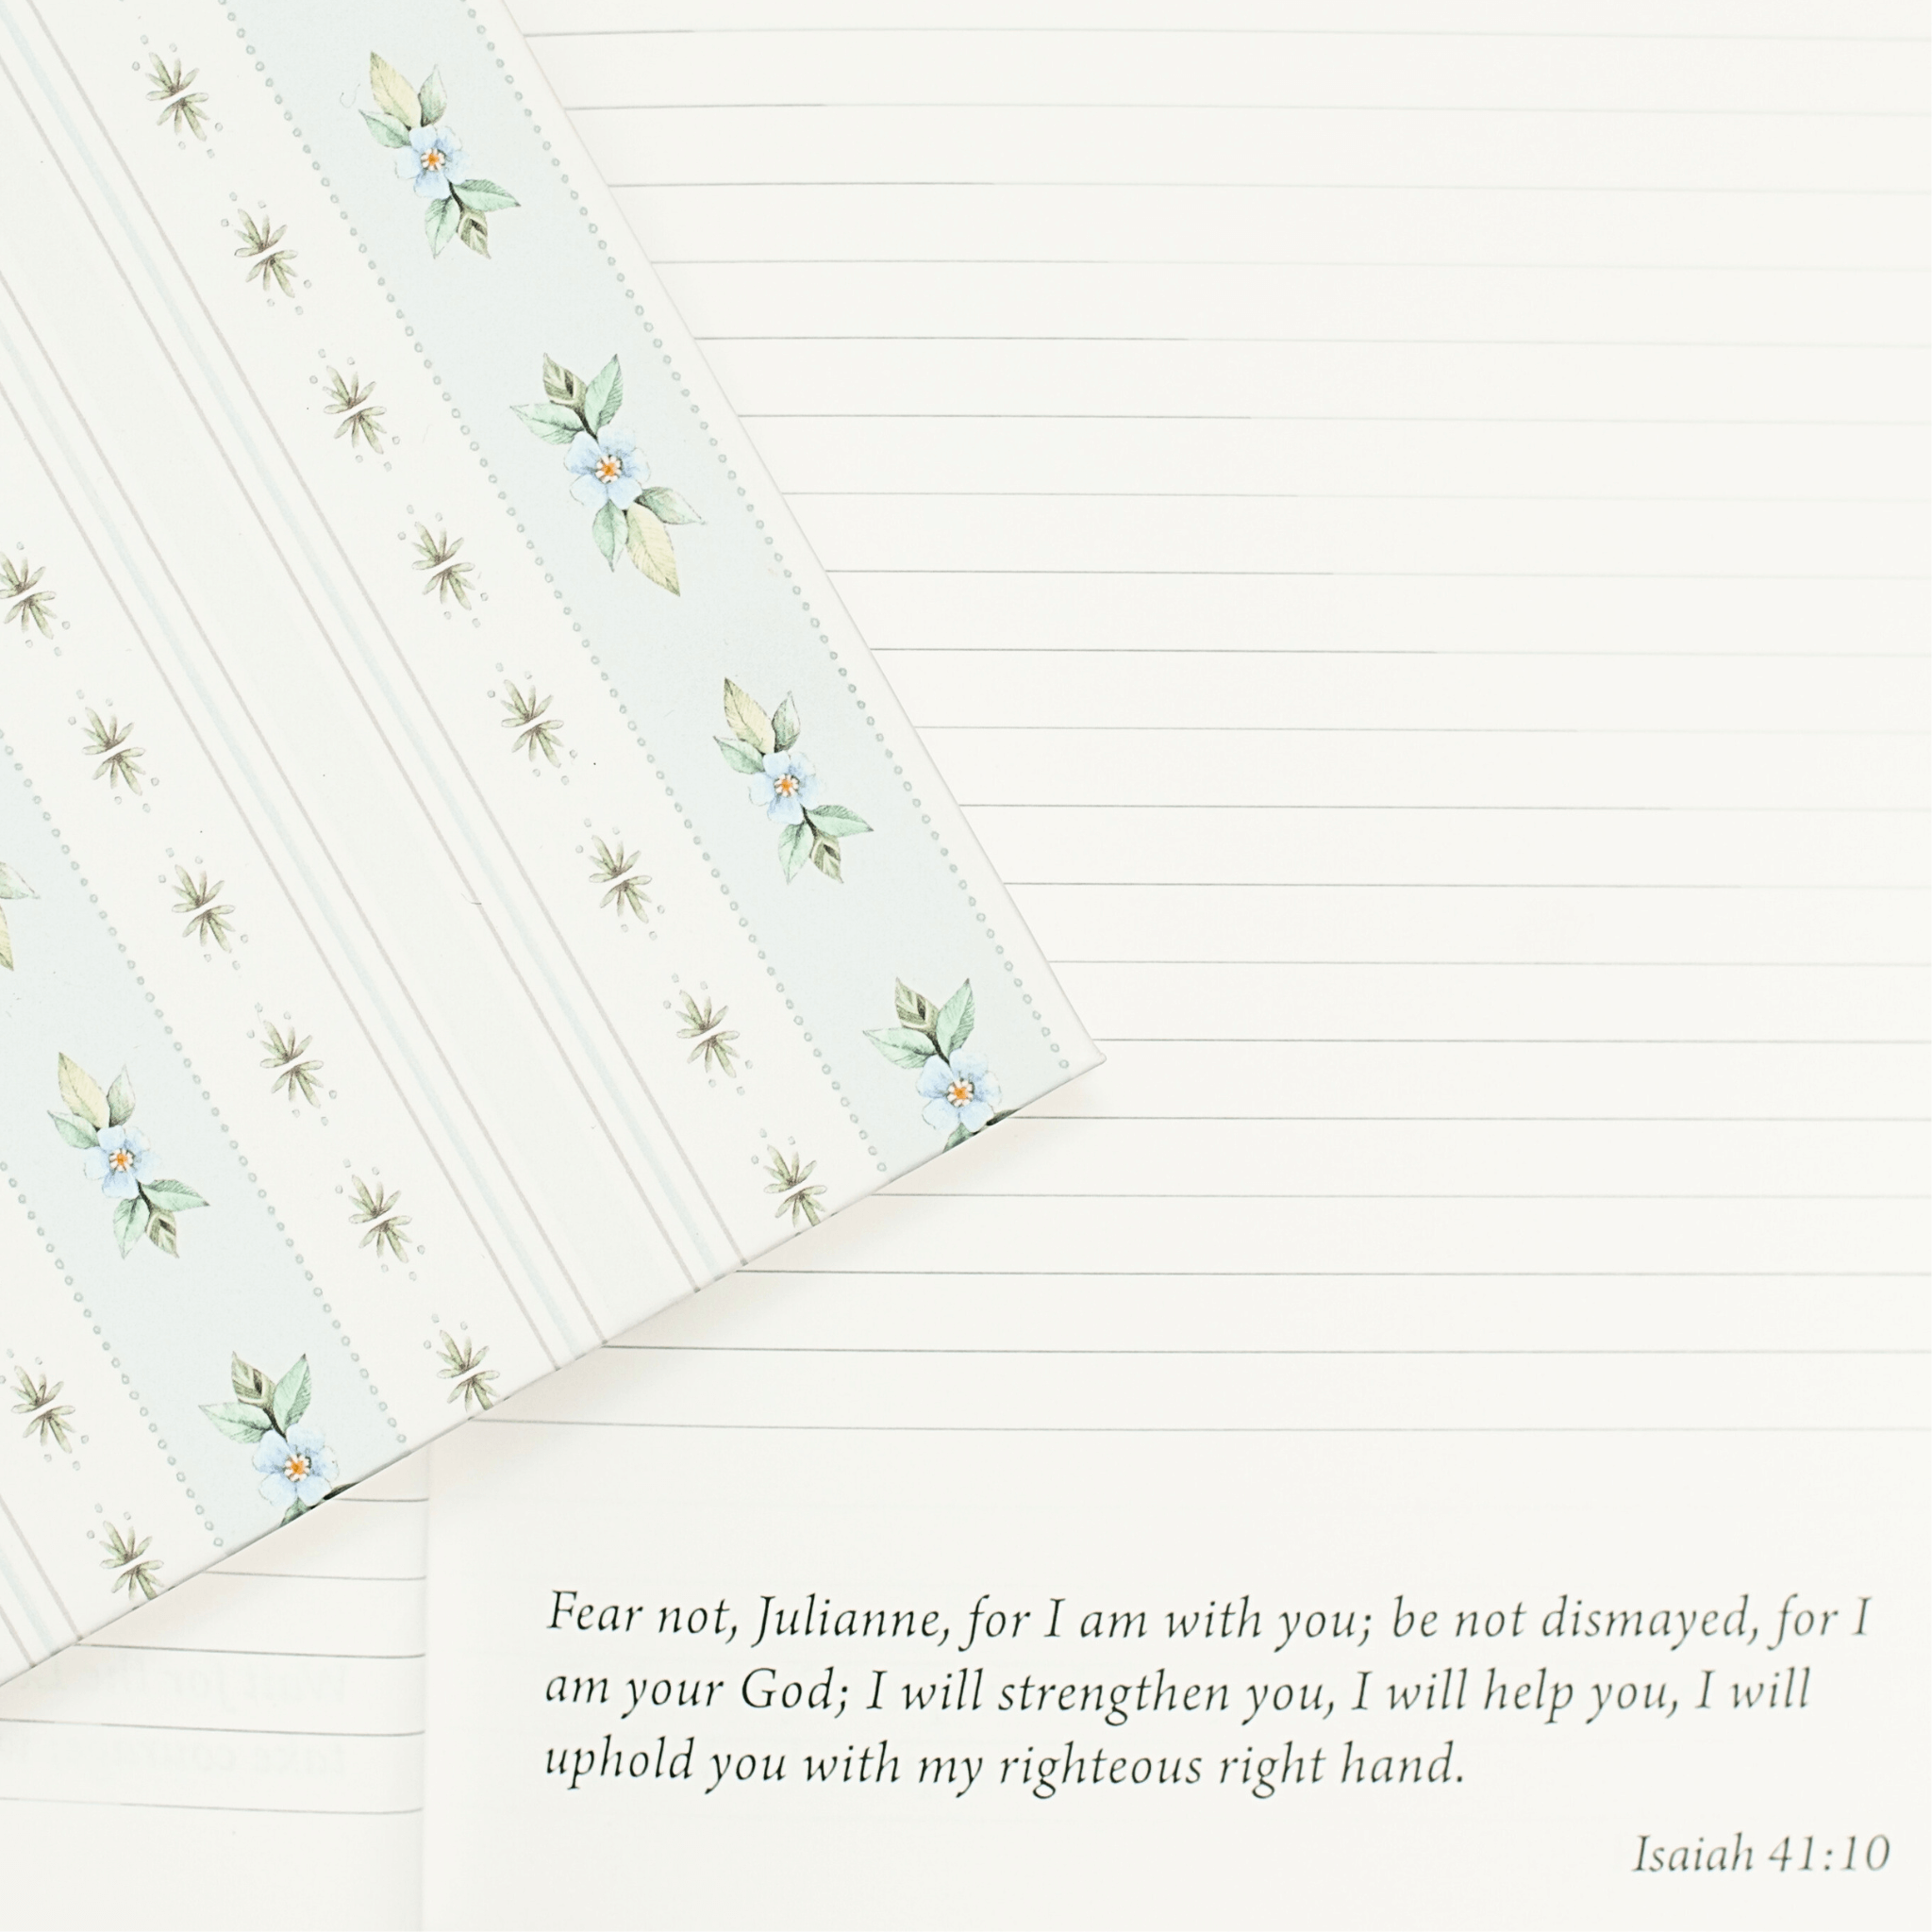 Fear not, Julianne, for I am with you; be not dismayed, for I
am your God; I will strengthen you, I will help you, I will
uphold you with my righteous right hand.
Isaiah 41:10